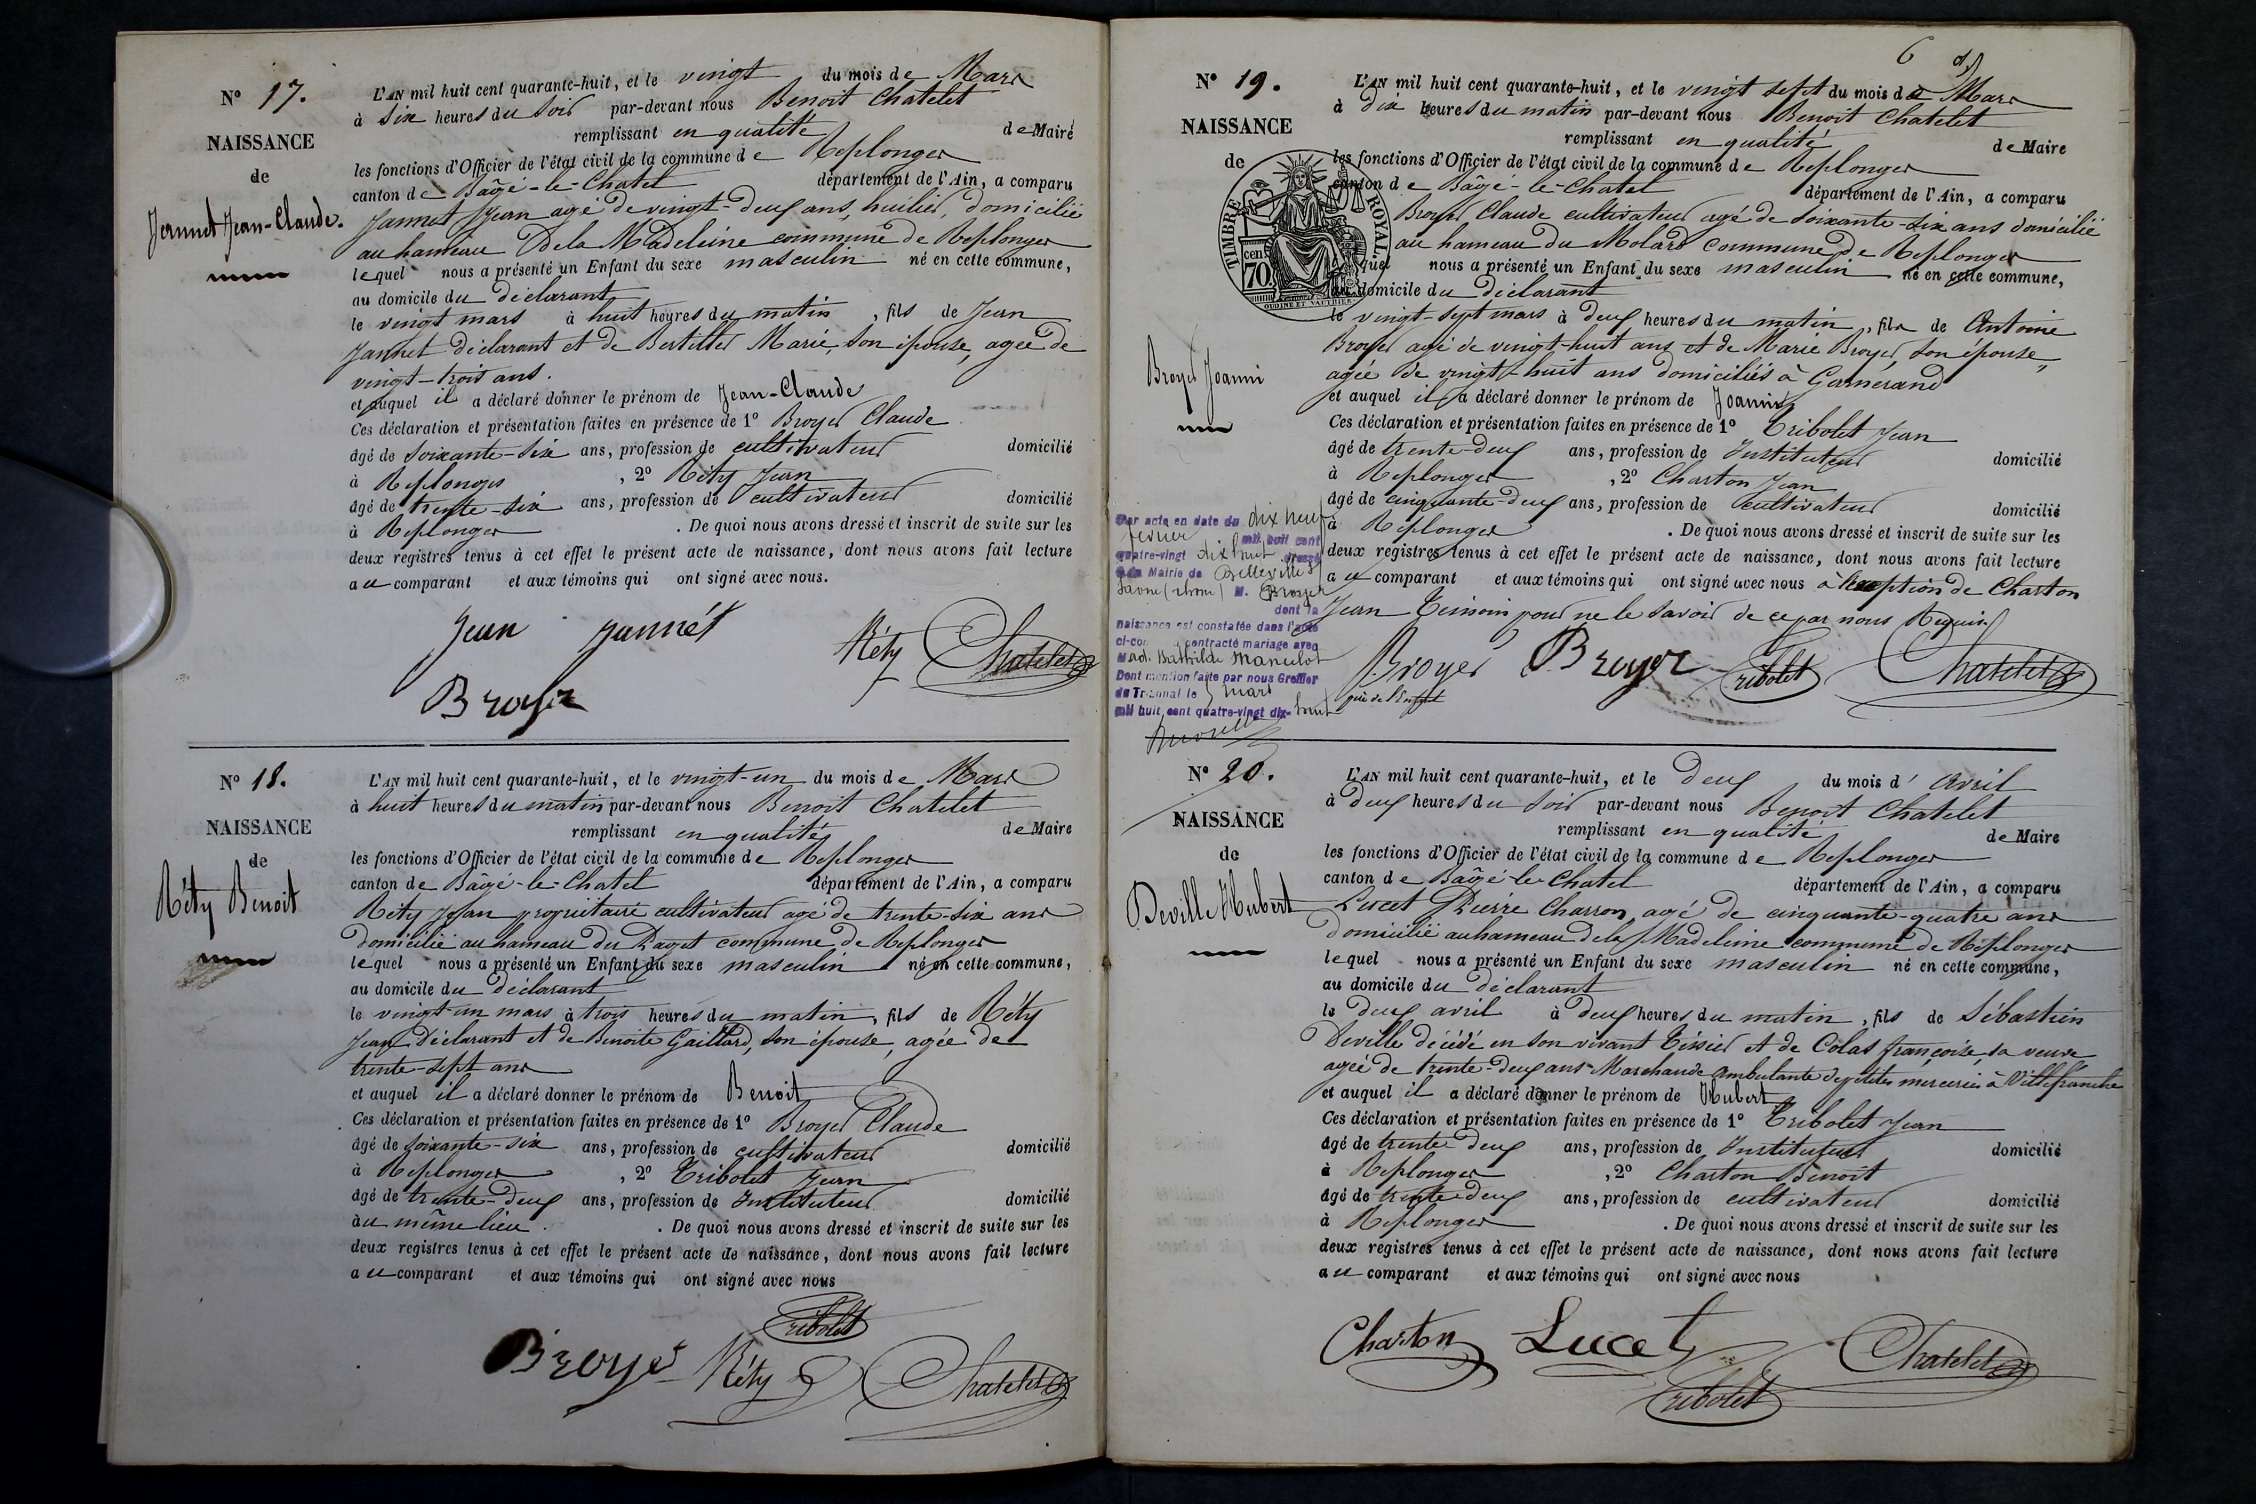 N° 17.
NAISSANCE
de
Jannet Jean-Claude.
L'AN mil huit cent quarante-huit, et le vingt du mois de Mars
à Six heures du Soir par-devant nous Benoit Chatelet
remplissant en qualité de Maire
les fonctions d'Officier de l'état civil de la commune de Replonges
canton de Bâgé-le-Chatel département de l'Ain, a comparu
Jannet Jean agé de vingt-deux ans, huilier, domicilié
au hameau De la Madeleine commune de Replonges
lequel nous a présenté un Enfant du sexe masculin né en cette commune,
au domicile du déclarant
le vingt mars à huit heures du matin, fils de Jean
Jannet déclarant et de Bertillet Marie, son épouse, agée de
vingt-trois ans.
et auquel il a déclaré donner le prénom de Jean-Claude
Ces déclaration et présentation faites en présence de 1° Broyer Claude
âgé de soixante-six ans, profession de cultivateur domicilié
à Replonges, 2° Réty Jean
âgé de trente-six ans, profession de cultivateur domicilié
à Replonges. De quoi nous avons dressé et inscrit de suite sur les
deux registres tenus à cet effet le présent acte de naissance, dont nous avons fait lecture
au comparant et aux témoins qui ont signé avec nous.
Jean Jannét Réty Chatelet
Broyer
N° 18.
NAISSANCE
de
Réty Benoit
L'AN mil huit cent quarante-huit, et le vingt-un du mois de Mars
à huit heures du matin par-devant nous Benoit Chatelet
remplissant en qualité de Maire
les fonctions d'Officier de l'état civil de la commune de Replonges
canton de Bâgé-le-Chatel département de l'Ain, a comparu
Réty Jean propriétaire cultivateur agé de trente-six ans
domicilié au hameau du commune de Replonges
lequel nous a présenté un Enfant du sexe masculin né en cette commune,
au domicile du déclarant
le vingt-un mars à trois heures du matin, fils de Réty
Jean déclarant et de Benoite Gaillard, son épouse, agée de
trente-sept ans
et auquel il a déclaré donner le prénom de Benoit
Ces déclaration et présentation faites en présence de 1° Broyer Claude
âgé de soixante-six ans, profession de cultivateur domicilié
à Replonges, 2° Tribolet Jean
âgé de trente-deux ans, profession de Instituteur domicilié
au même lieu. De quoi nous avons dressé et inscrit de suite sur les
deux registres tenus à cet effet le présent acte de naissance, dont nous avons fait lecture
au comparant et aux témoins qui ont signé avec nous
Tribolet
Broyer Réty Chatelet
6
N° 19.
NAISSANCE
de
TIMBRE ROYAL
70 cen
OUDINE ET VAUTHIER
Broyer Joanni
L'AN mil huit cent quarante-huit, et le vingt sept du mois de Mars
à dix heures du matin par-devant nous Benoit Chatelet
remplissant en qualité de Maire
les fonctions d'Officier de l'état civil de la commune de Replonges
canton de Bâgé-le-Chatel département de l'Ain, a comparu
Broyer Claude cultivateur agé de soixante-six ans domicilié
au hameau du Molard commune de Replonges
quel nous a présenté un Enfant du sexe masculin né en cette commune,
au domicile du déclarant
le vingt-sept mars à deux heures du matin, fils de Antoine
Broyer agé de vingt-huit ans et de Marie Broyer son épouse,
agée de vingt-huit ans domiciliés à Garnerand
et auquel il a déclaré donner le prénom de Joanni
Ces déclaration et présentation faites en présence de 1° Tribolet Jean
âgé de trente-deux ans, profession de Instituteur domicilié
à Replonges, 2° Charton Jean
âgé de cinquante-deux ans, profession de cultivateur domicilié
à Replonges. De quoi nous avons dressé et inscrit de suite sur les
deux registres tenus à cet effet le présent acte de naissance, dont nous avons fait lecture
au comparant et aux témoins qui ont signé avec nous à l'exception de Charton
Jean Témoin pour ne le savoir de ce par nous Requis
Broyer Broyer Tribolet Chatelet
père de l'enfant
Par acte en date du dix neuf
février mil huit cent
quatre-vingt dix huit dressé
à la Mairie de Belleville s/
Saône (rhône) M. Broyer
dont la
naissance est constatée dans l'acte
ci-contre a contracté mariage avec
Bathilde Mancelot
Dont mention faite par nous Greffier
du Tribunal le 5 mars
mil huit cent quatre-vingt dix-huit
N° 20.
NAISSANCE
de
Deville Hubert
L'AN mil huit cent quarante-huit, et le deux du mois d'avril
à deux heures du soir par-devant nous Benoit Chatelet
remplissant en qualité de Maire
les fonctions d'Officier de l'état civil de la commune de Replonges
canton de Bâgé-le-Chatel département de l'Ain, a comparu
Lucet Pierre Charron, agé de cinquante-quatre ans
domicilié au hameau de la Madeleine commune de Replonges
lequel nous a présenté un Enfant du sexe masculin né en cette commune,
au domicile du déclarant
le deux avril à deux heures du matin, fils de Sébastien
Deville décédé en son vivant Tissier et de Colas françoise, sa veuve
agée de trente-deux ans Marchande ambulante de petites merceries à Villefranche
et auquel il a déclaré donner le prénom de Hubert
Ces déclaration et présentation faites en présence de 1° Tribolet Jean
âgé de trente deux ans, profession de Instituteur domicilié
à Replonges, 2° Charton Benoit
âgé de trente deux ans, profession de cultivateur domicilié
à Replonges. De quoi nous avons dressé et inscrit de suite sur les
deux registres tenus à cet effet le présent acte de naissance, dont nous avons fait lecture
au comparant et aux témoins qui ont signé avec nous
Charton Lucet Chatelet
Tribolet